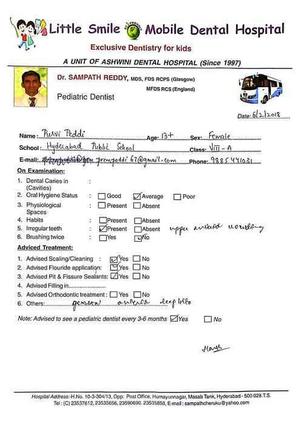 Little Smile Mobile Dental Hospital
Exclusive Dentistry for kids
A UNIT OF ASHWINI DENTAL HOSPITAL (Since 1997)
Dr. SAMPATH REDDY, MDS, FDS RCPS (Glasgow)
MFDS RCS (England)
Pediatric Dentist
Date: 6/2/2018
Name: Purvi Peddi Age: 13+ Sex: Female
School: Hyderabad Public School Class: VIII-A
E-mail: Phone:
On Examination:
1. Dental Caries in (Cavities) :
2. Oral Hygiene Status : Good Average Poor
3. Physiological Spaces : Present Absent
4. Habits : Present Absent
5. Irregular teeth : Present Absent upper
6. Brushing twice : Yes No
Adviced Treatment:
1. Advised Scaling/Cleaning : Yes
2. Advised Flouride application: Yes
3. Advised Pit & Fissure Sealants: Yes
4. Advised Filling in
5. Advised Orthodontic treatment: Yes No
6. Others:
Note: Advised to see a pediatric dentist every 3-6 months Yes No
Hospital Address: H.No. 10-3-304/13, Opp. Post Office, Humayunnagar, Masab Tank, Hyderabad - 500 028 T.S.
Tel: (C) 23537612, 23535656, 23590690, 23535858, E-mail: sampathcheruku@yahoo.com